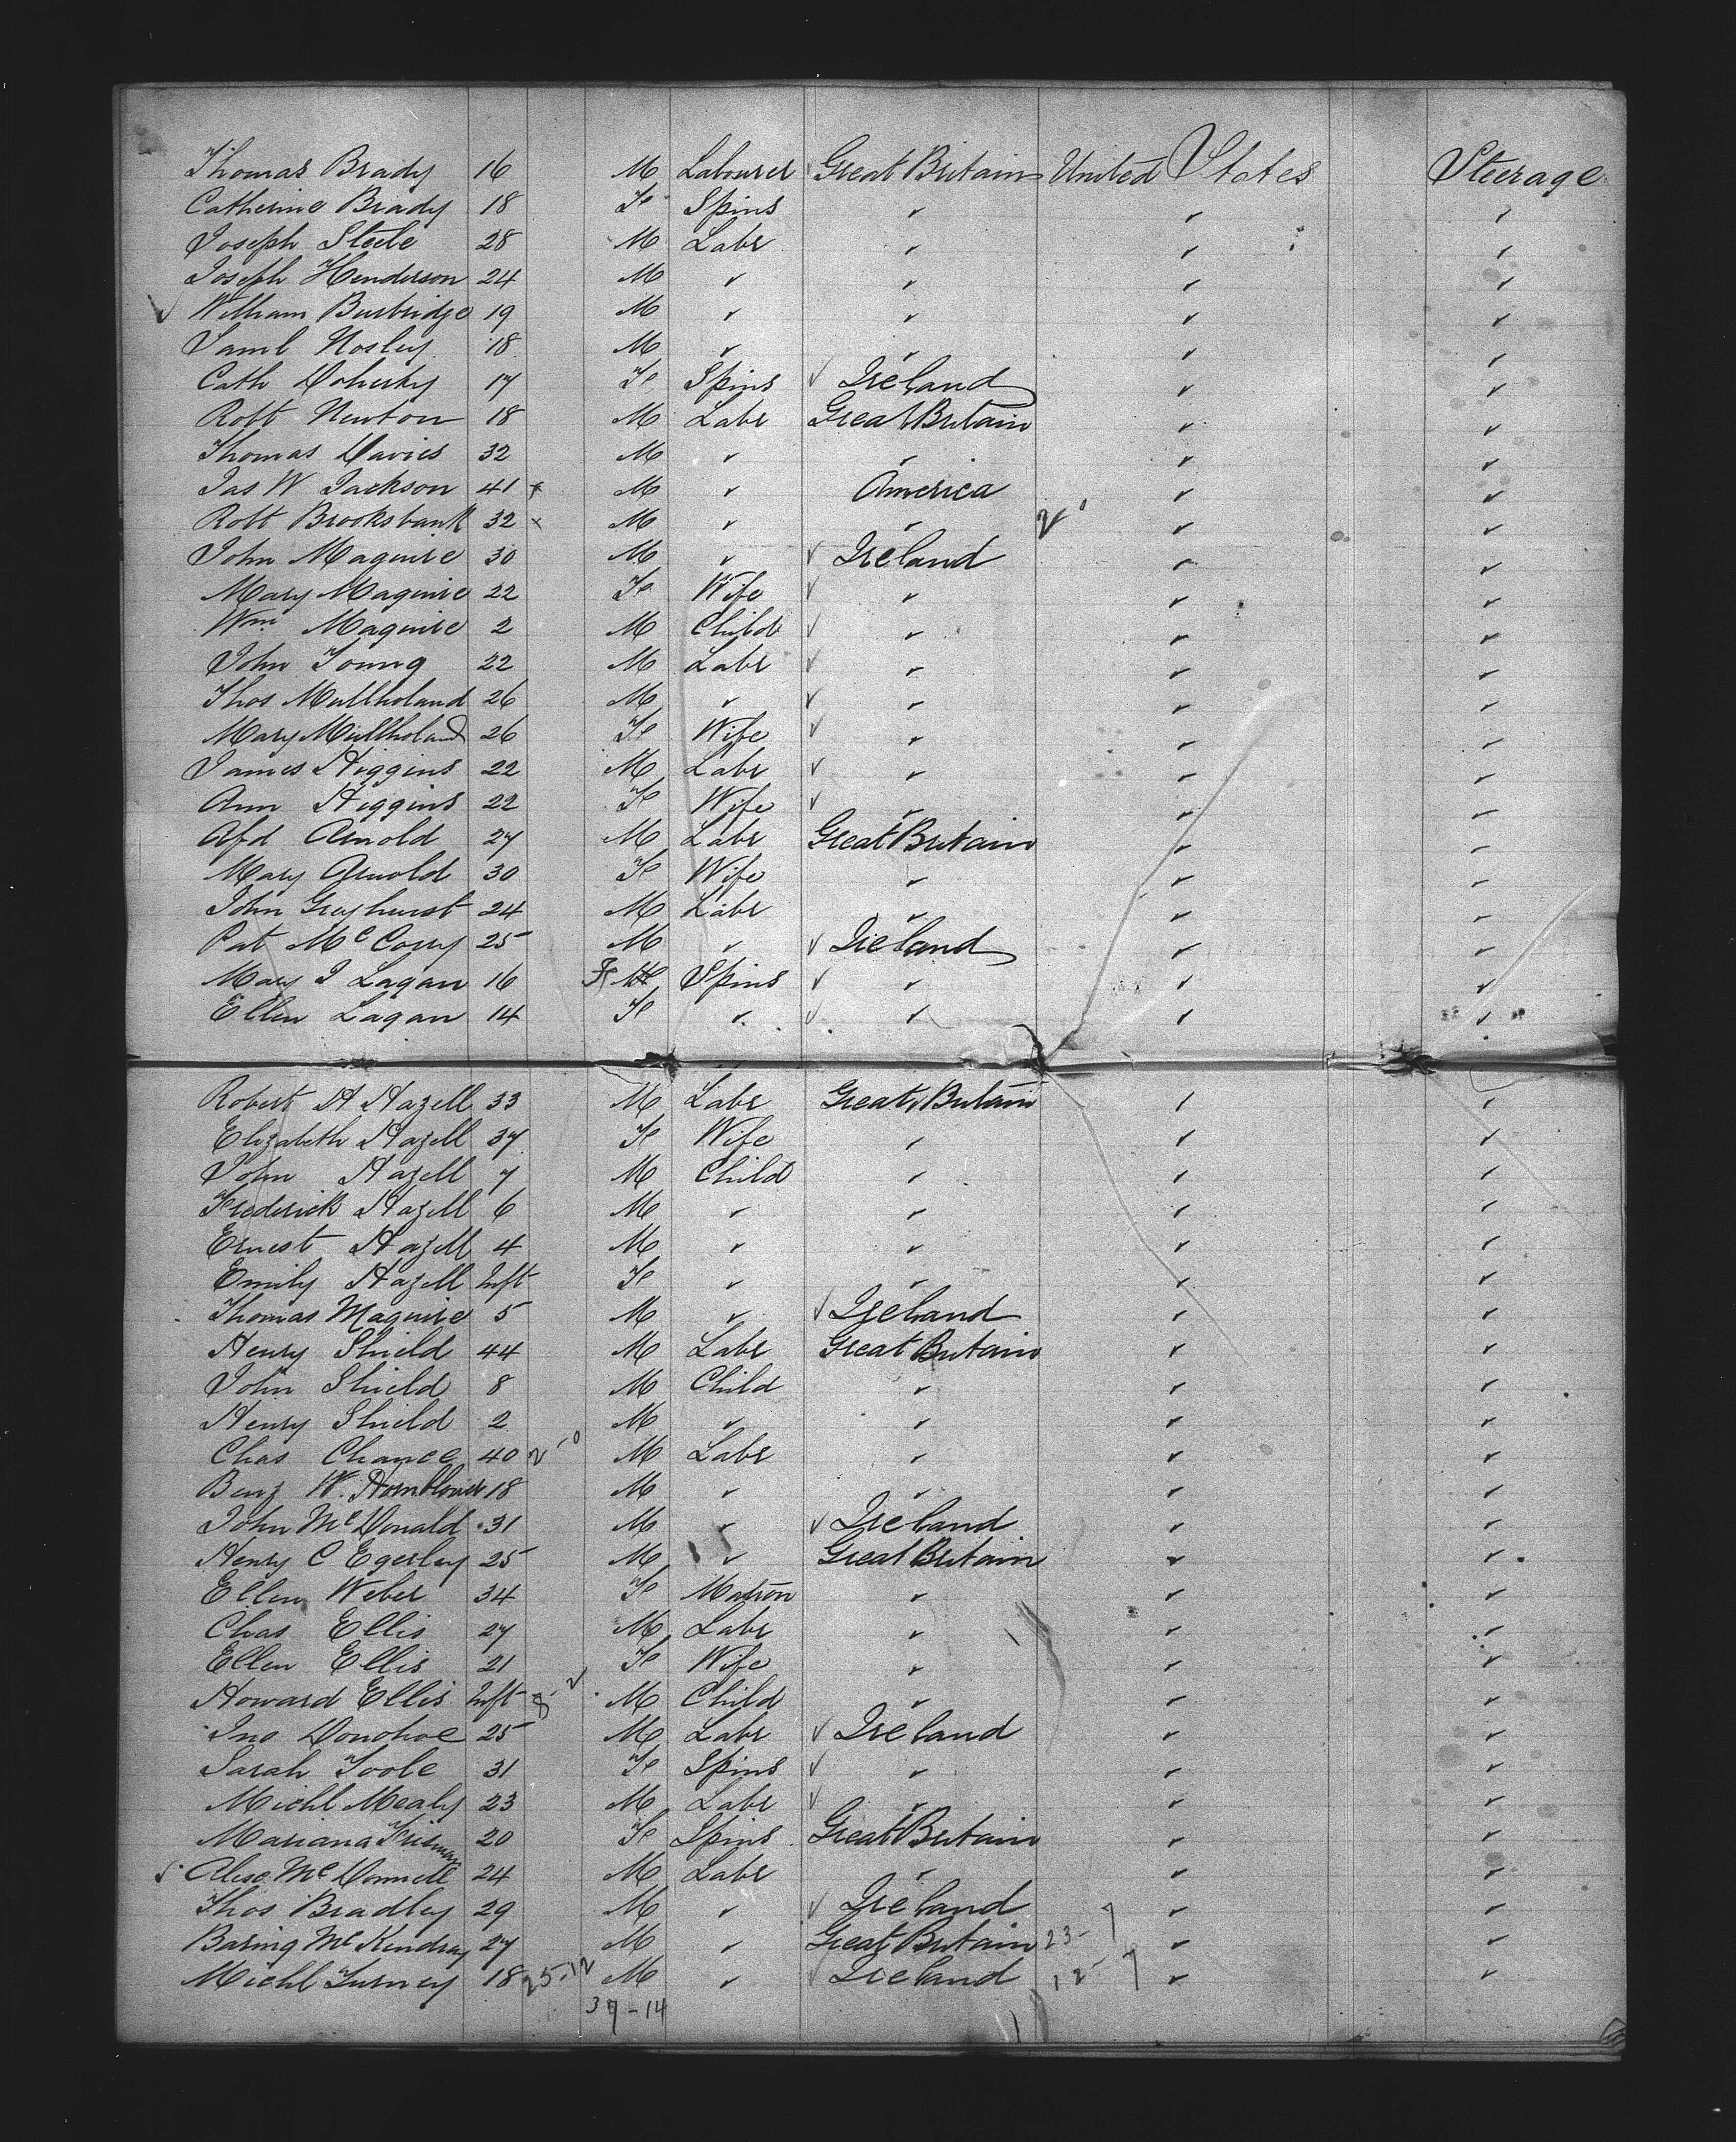 Thomas Brady 16 M Labourer ✓ Great Britain United States Steerage
Catherine Brady 18 F Spins ✓ ✓ ✓
Joseph Steele 28 M Labr ✓ ✓ ✓
Joseph Henderson 24 M ✓ ✓ ✓ ✓
✓ William Burbridge 19 M ✓ ✓ ✓ ✓
Saml Nosley 18 M ✓ ✓ ✓ ✓
Cath Doherty 17 F Spins ✓ Ireland ✓ ✓
Robt Newton 18 M Labr Great Britain ✓ ✓
Thomas Davies 32 M ✓ ✓ ✓ ✓
Jas W Jackson 41 x M ✓ America ✓ ✓
Robt Brooksbank 32 x M ✓ ✓ ✓ ✓
John Maguire 30 M ✓ ✓ Ireland ✓ ✓
Mary Maguire 22 F Wife ✓ ✓ ✓ ✓
Wm Maguire 2 M Child ✓ ✓ ✓ ✓
John Young 22 M Labr ✓ ✓ ✓ ✓
Thos Mullholand 26 M ✓ ✓ ✓ ✓ ✓
Mary Mullholand 26 F Wife ✓ ✓ ✓ ✓
James Higgins 22 M Labr ✓ ✓ ✓ ✓
Ann Higgins 22 F Wife ✓ ✓ ✓ ✓
Afd Arnold 27 M Labr Great Britain ✓ ✓
Mary Arnold 30 F Wife ✓ ✓ ✓
John Grayhurst 24 M Labr ✓ ✓ ✓
Pat Mc Corry 25 M ✓ ✓ Ireland ✓ ✓
Mary J Lagan 16 F Spins ✓ ✓ ✓ ✓
Ellen Lagan 14 F ✓ ✓ ✓ ✓ ✓
Robert H Hazell 33 M Labr Great Britain ✓ ✓
Elizabeth Hazell 37 F Wife ✓ ✓ ✓
John Hazell 7 M Child ✓ ✓ ✓
Frederick Hazell 6 M ✓ ✓ ✓ ✓
Ernest Hazell 4 M ✓ ✓ ✓ ✓
Emily Hazell Inft F ✓ ✓ ✓ ✓
Thomas Maguire 5 M ✓ ✓ Ireland ✓ ✓
Henry Shield 44 M Labr Great Britain ✓ ✓
John Shield 8 M Child ✓ ✓ ✓
Henry Shield 2 M ✓ ✓ ✓ ✓
Chas Chance 40 2-0 M Labr ✓ ✓ ✓
Benj W. Hornblower 18 M ✓ ✓ ✓ ✓
John Mc Donald 31 M ✓ ✓ Ireland ✓ ✓
Henry C Egerley 25 M ✓ Great Britain ✓ ✓
Ellen Weber 34 F Matron ✓ ✓ ✓
Chas Ellis 27 M Labr ✓ ✓ ✓
Ellen Ellis 21 F Wife ✓ ✓ ✓
Howard Ellis Inft 8-2 M Child ✓ ✓ ✓
Jno Donohoe 25 M Labr ✓ Ireland ✓ ✓
Sarah Toole 31 F Spins ✓ ✓ ✓ ✓
Michl Mealy 23 M Labr ✓ ✓ ✓ ✓
Mariana 20 F Spins Great Britain ✓ ✓
Alexr Mc Donnell 24 M Labr ✓ ✓ ✓
Thos Bradley 29 M ✓ ✓ Ireland ✓ ✓
Baring Mc Kendray 27 M ✓ Great Britain 23-7 ✓ ✓
Michl Turney 18 25-12 M ✓ ✓ Ireland 12-7 ✓ ✓
37-14